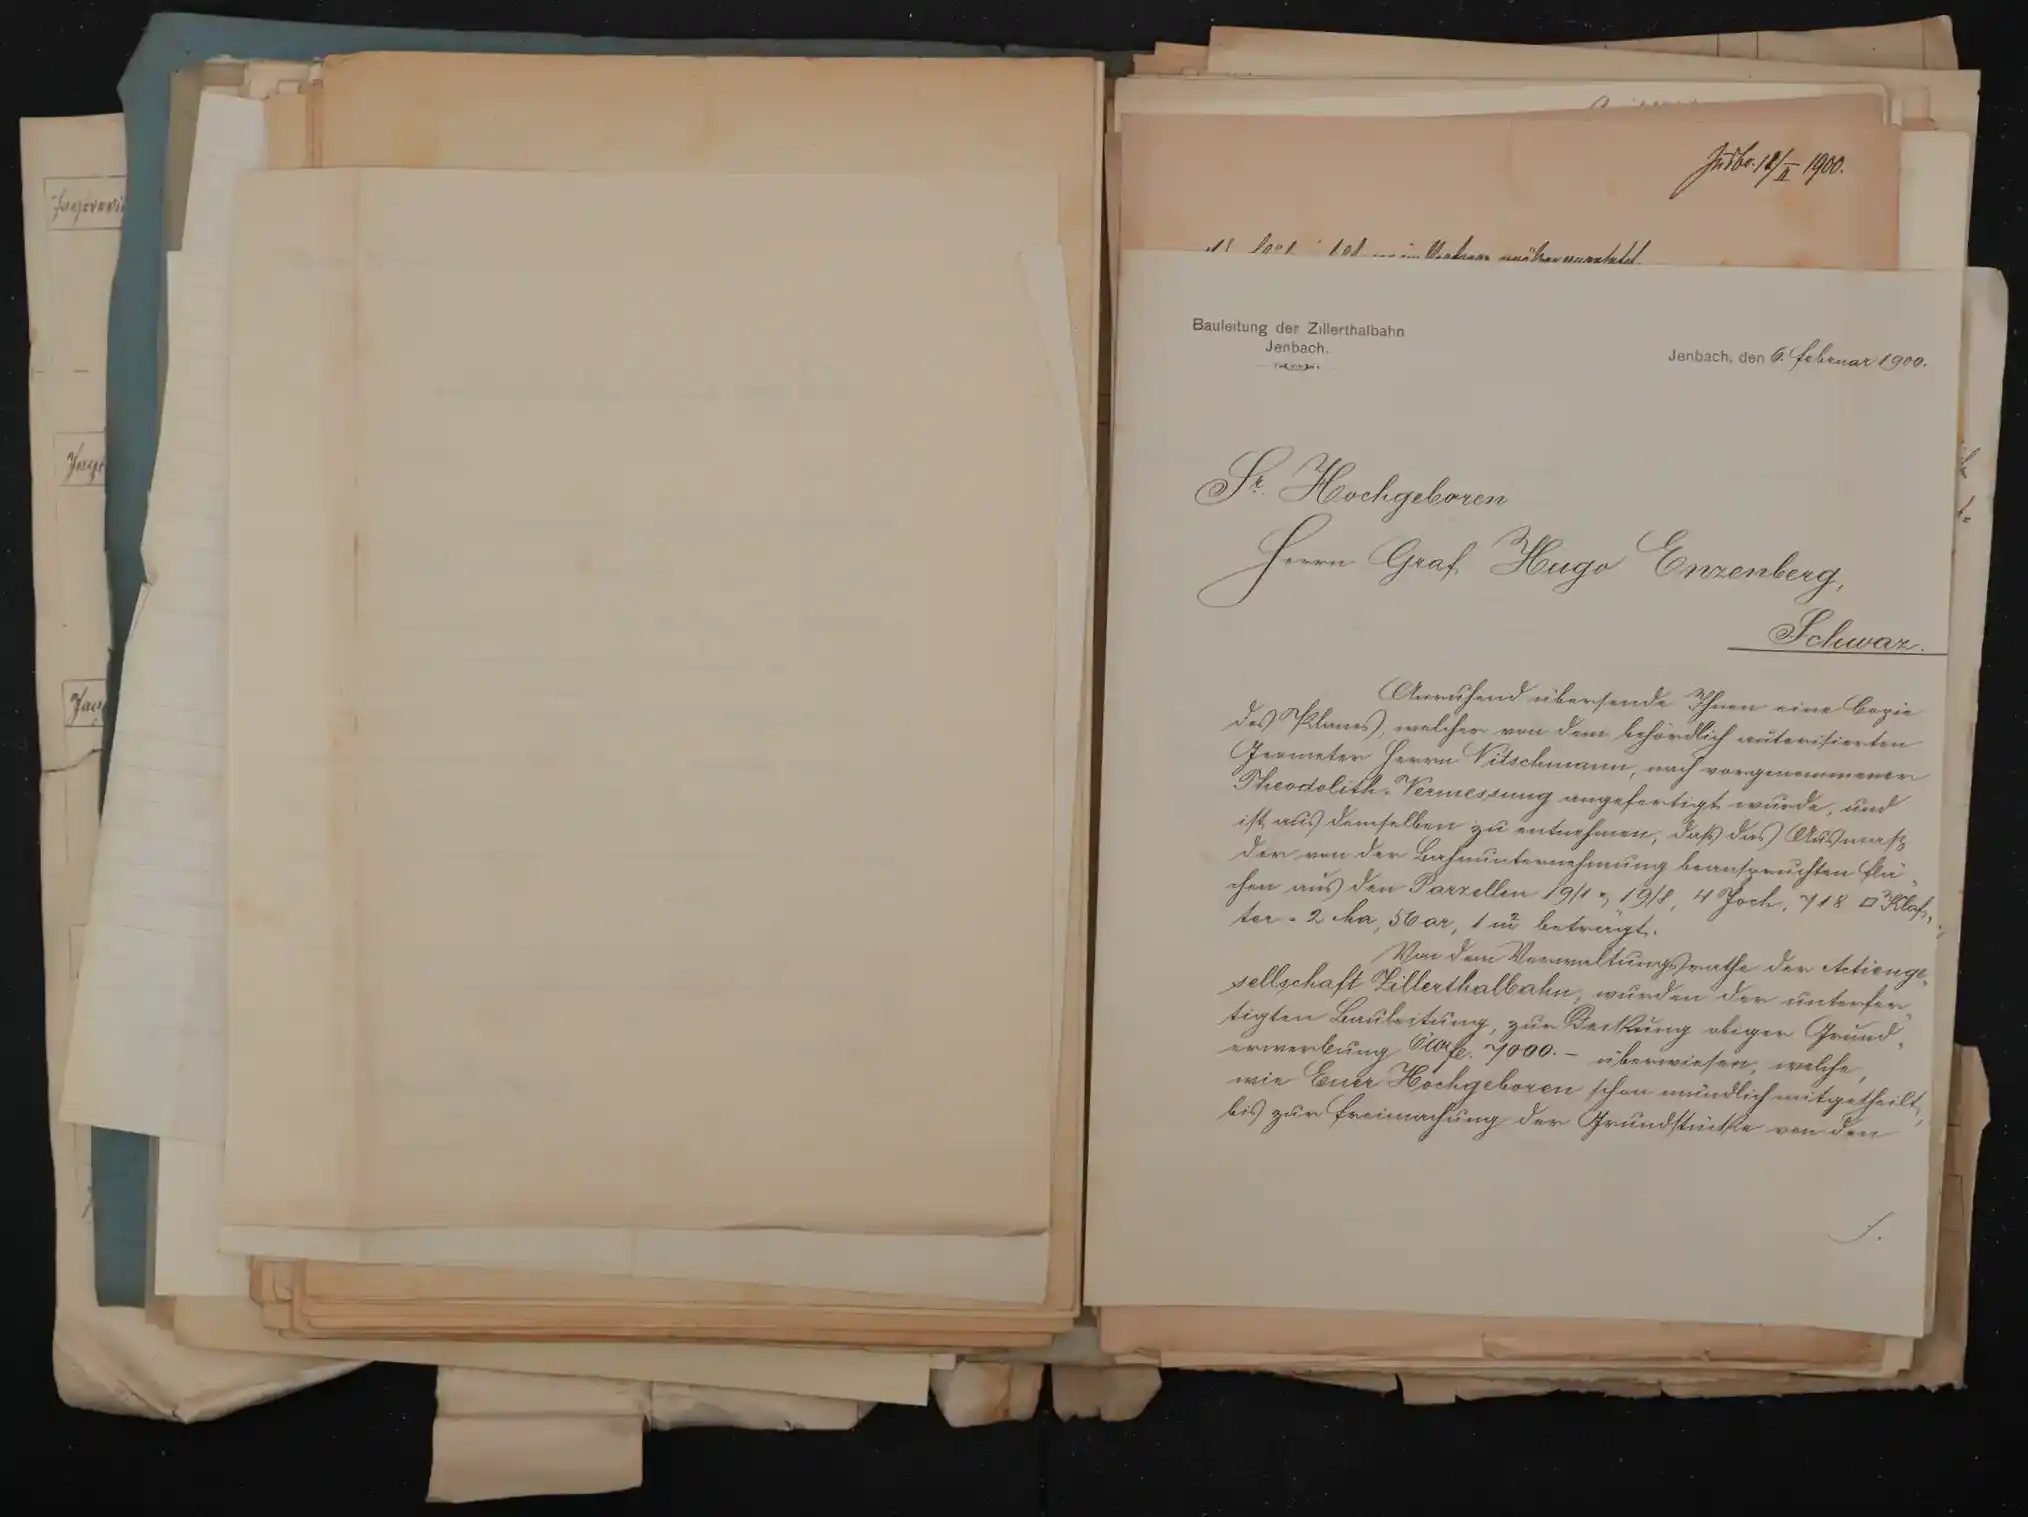 Insbr. 12/II 1900.
Bauleitung der Zillerthalbahn
Jenbach.
Jenbach, den 6. Februar 1900.
Sr. Hochgeboren
Herrn Graf Hugo Enzenberg,
Schwaz.
Anruhend übersende Ihnen eine Copie
des Planes, welcher von dem behördlich autorisierten
Geometer Herrn Nitschmann, nach vorgenommener
Theodolith-Vermessung angefertigt wurde, und
ist aus demselben zu entnehmen, daß das Ausmaß
der von der Bahnunternehmung beanspruchten Flä-
chen aus den Parzellen 19/1 19/8, 4 Joch, 718 □ Klaf-
ter = 2 ha, 56 ar, 1 m² beträgt.
Von dem Verwaltungsrathe der Actienge-
sellschaft Zillerthalbahn, wurden der unterfer-
tigten Bauleitung, zur Deckung obiger Grund-
erwerbung 7000.- überwiesen, welche,
wie Euer Hochgeboren schon mündlich mitgetheilt,
bis zur Freimachung der Grundstücke von den